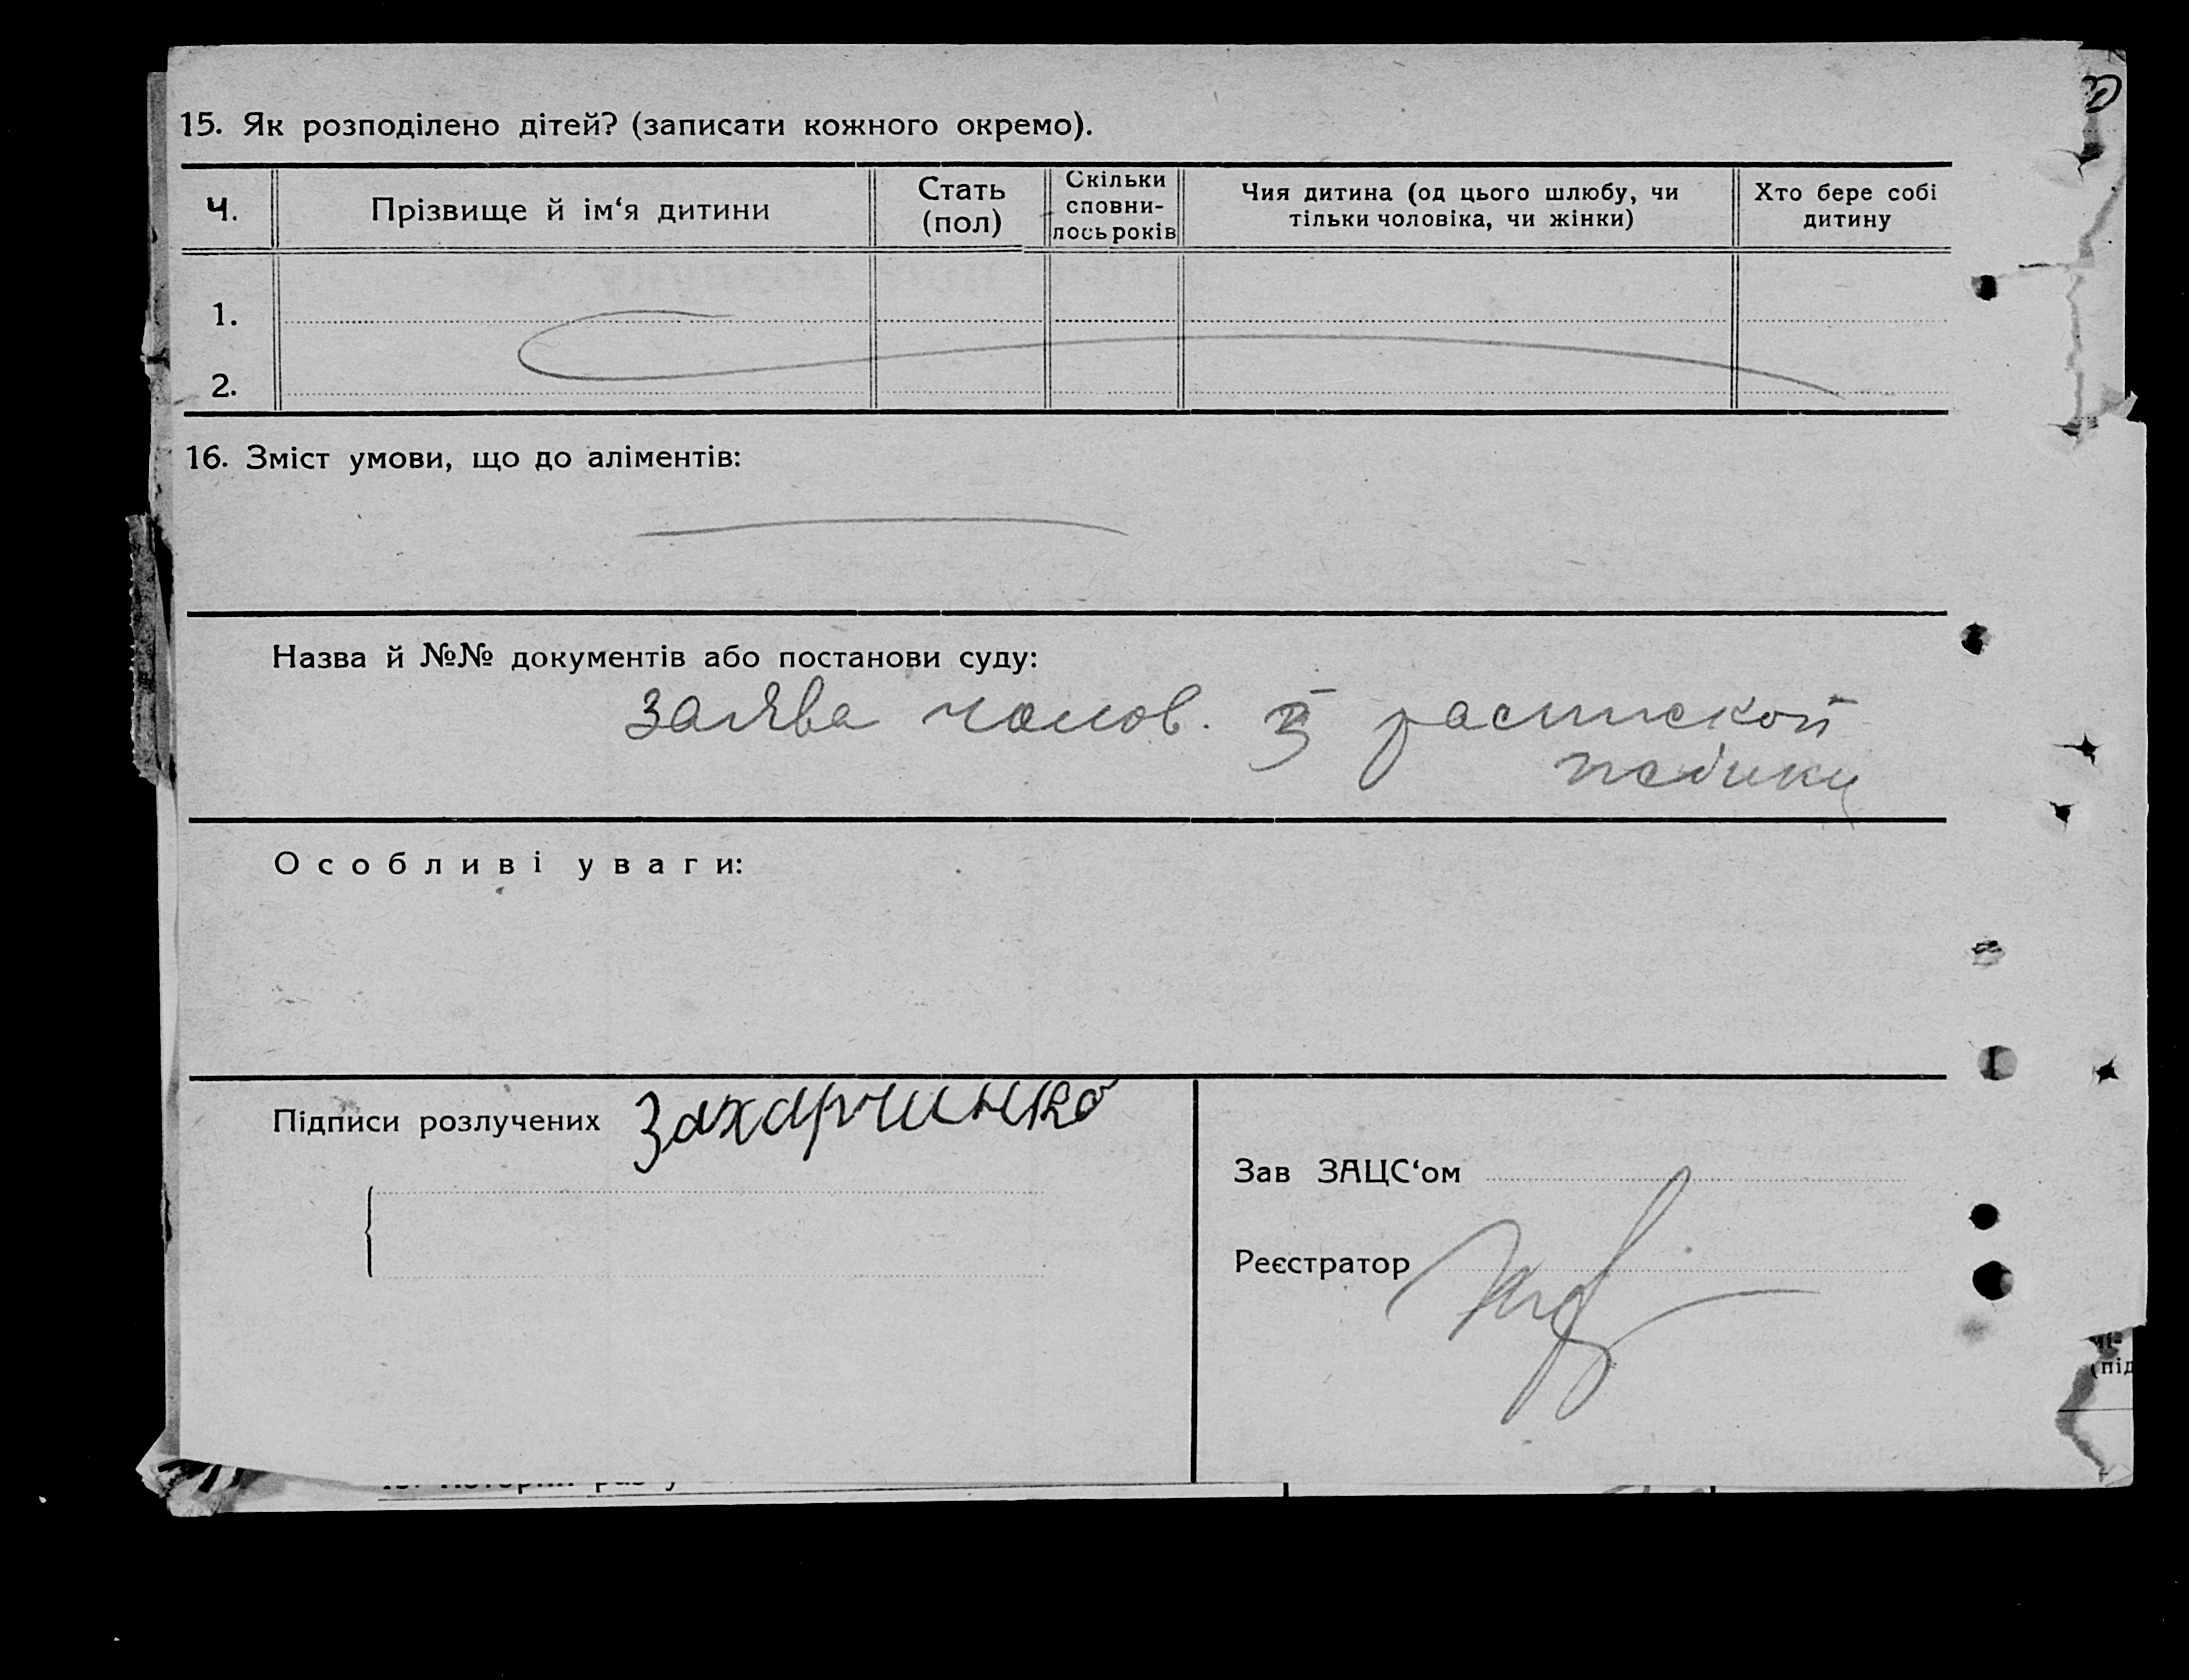 15. Як розподілено дітей? (записати кожного окремо).
Ч. Прізвище й ім‘я дитини Стать (пол) Скільки сповни-лось років Чия дитина (од цього шлюбу, чи тільки чоловіка, чи жінки) Хто бере собі дитину
1.
2.
16. Зміст умови, що до аліментів:
Назва й №№ документів або постанови суду:
заява чолов. з распиской
Особливі уваги:
Підписи розлучених Захарчинко
Зав ЗАЦС‘ом
Реєстратор
(під